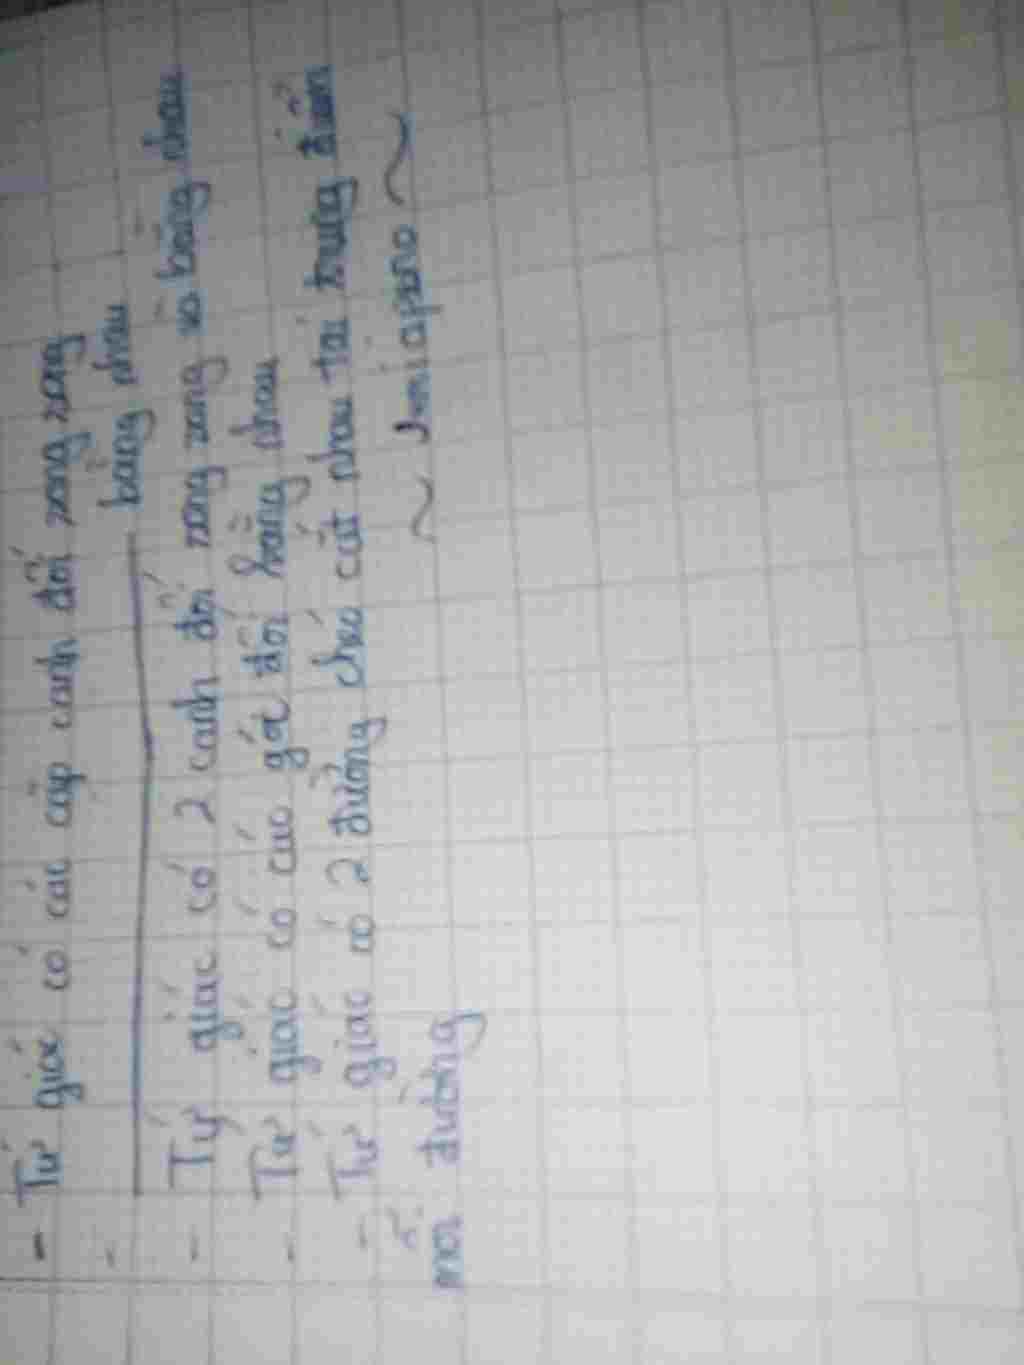 - Tứ giác có các cặp cạnh đối song song
- ________ bằng nhau
- Tứ giác có 2 cạnh đối song song và bằng nhau
- Tứ giác có các góc đối bằng nhau
- Tứ giác có 2 đường chéo cắt nhau tại trung điểm
mỗi đường ~ ~